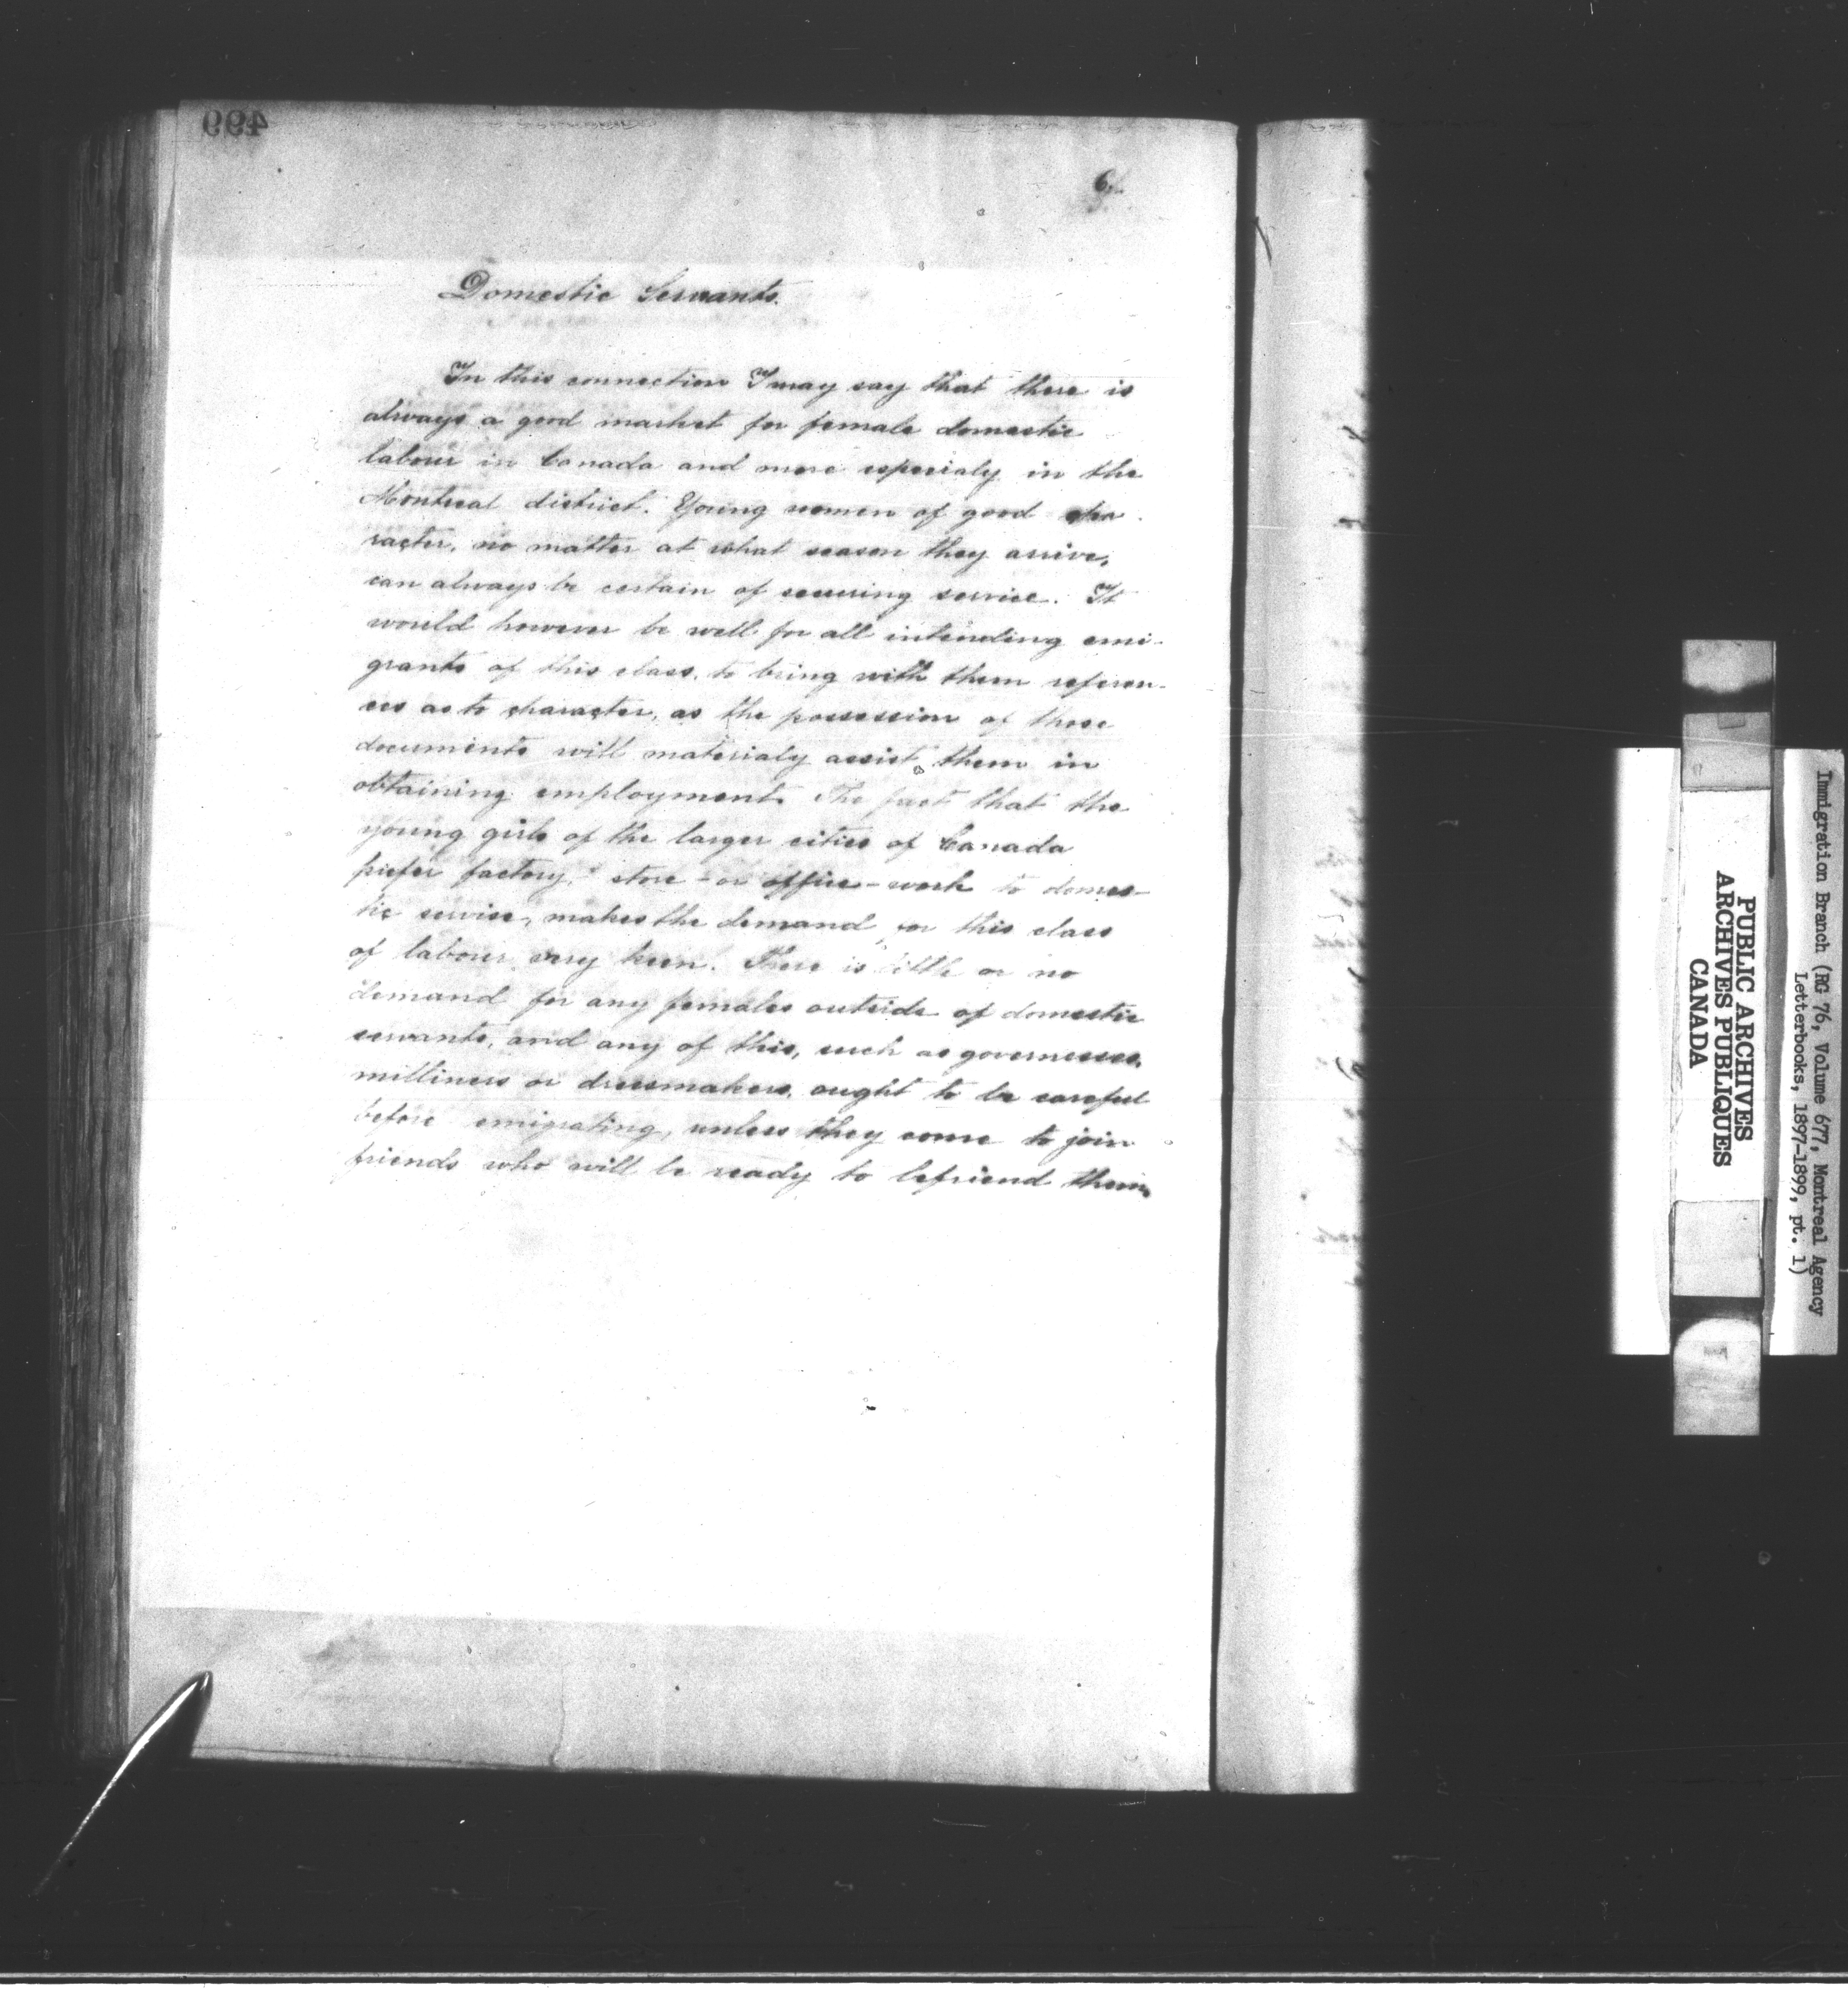 499
6.
Domestic Servants.
In this connection I may say that there is
always a good market for female domestic
labour in Canada and more especialy in the
Montreal district. Young women of good cha-
racter, no matter at what season they arrive,
can always be certain of securing service. It
would however be well for all intending emi-
grants of this class, to bring with them referen-
ces as to character, as the possession of these
documents will materialy assist them in
obtaining employment. The fact that the
young girls of the larger cities of Canada
prefer factory, store - or office - work to domes-
tic service, makes the demand for this class
of labour very keen. There is little or no
demand for any females outside of domestic
servants, and any of this, such as governesses,
milliners or dressmakers, ought to be careful
before emigrating, unless they come to join
friends who will be ready to befriend them.
PUBLIC ARCHIVES
ARCHIVES PUBLIQUES
CANADA
Immigration Branch (RG 76, Volume 677, Montreal Agency
Letterbooks, 1897-1899, pt. 1)